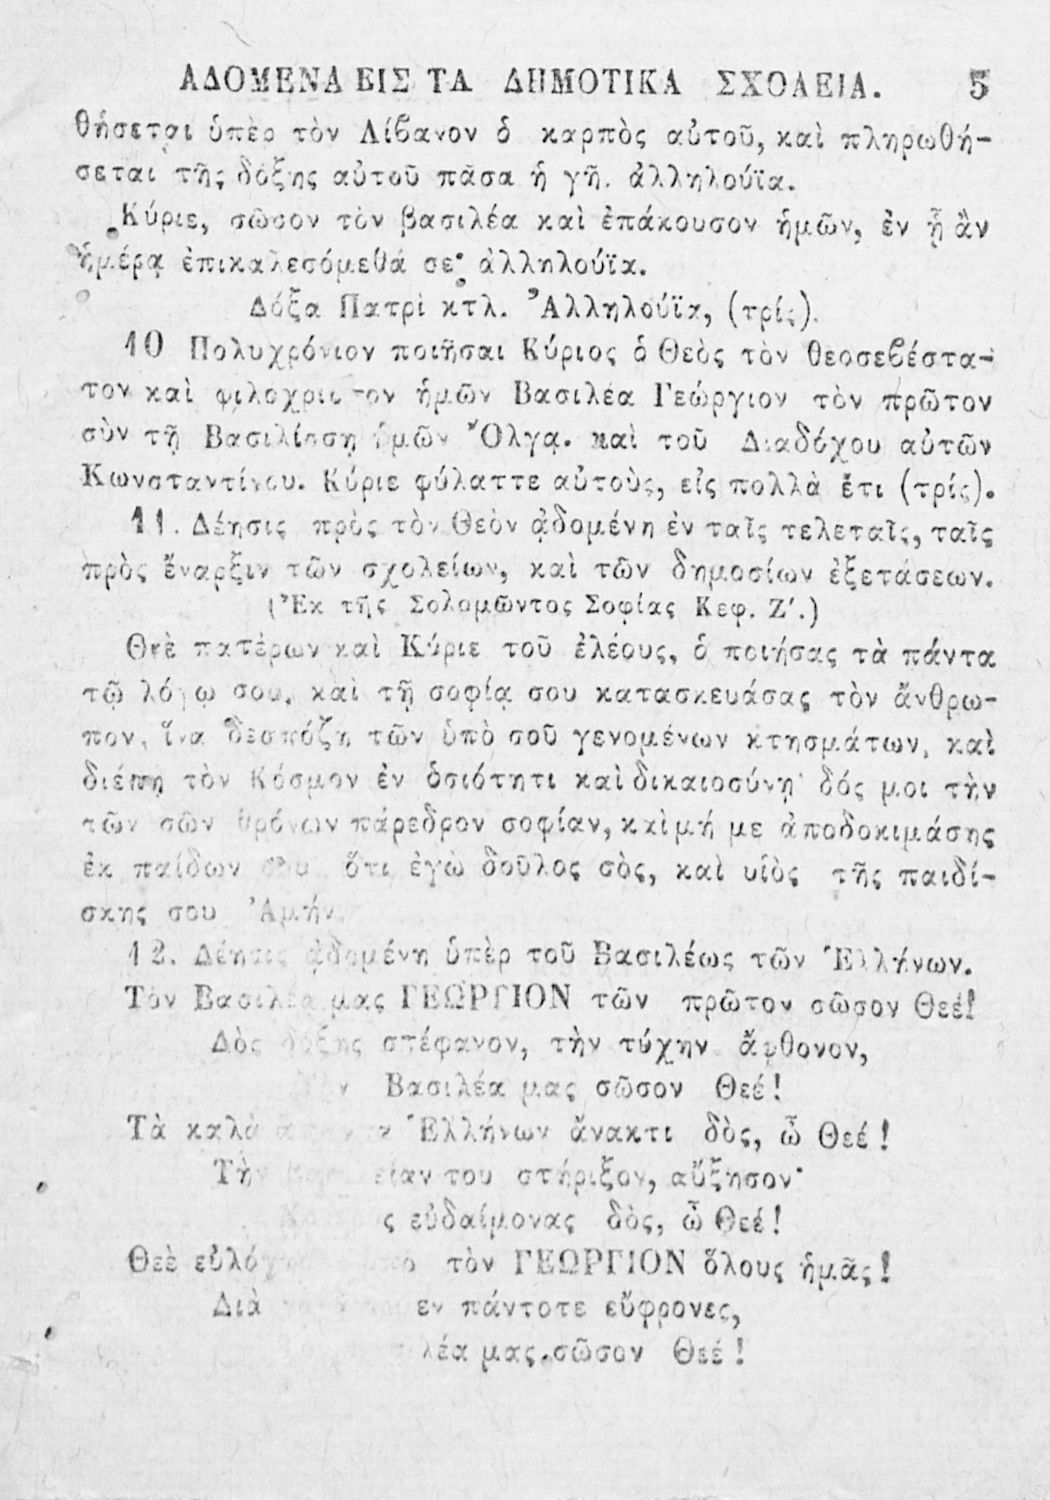 ΑΔΟΜΕΝΑ ΕΙΣ ΤΑ ΔΗΜΟΤΙΚΑ ΣΧΟΛΕΙΑ. 5
θήσεται ὑπὲρ τὸν Λίβανον ὁ καρπὸς αὐτοῦ, καὶ πληρωθή-
σεται τῆς δόξης αὐτοῦ πᾶσα ἡ γῆ. ἀλληλούϊα.
Κύριε, σῶσον τὸν βασιλέα καὶ ἐπάκουσον ἡμῶν, ἐν ᾗ ἂν
ἡμέρᾳ ἐπικαλεσόμεθά σε· ἀλληλούϊα.
Δόξα Πατρὶ κτλ. Ἀλληλούϊα, (τρίς).
10 Πολυχρόνιον ποιῆσαι Κύριος ὁ Θεὸς τὸν θεοσεβέστα-
τον καὶ φιλόχριστον ἡμῶν Βασιλέα Γεώργιον τὸν πρῶτον
σὺν τῇ Βασιλίσσῃ ἡμῶν Ὄλγᾳ. καὶ τοῦ Διαδόχου αὐτῶν
Κωνσταντίνου. Κύριε φύλαττε αὐτοὺς, εἰς πολλὰ ἔτι (τρίς).
11. Δέησις πρὸς τὸν Θεὸν ᾀδομένη ἐν ταῖς τελεταῖς, ταῖς
πρὸς ἔναρξιν τῶν σχολείων, καὶ τῶν δημοσίων ἐξετάσεων.
(Ἐκ τῆς Σολομῶντος Σοφίας Κεφ. Ζ'.)
Θεὲ πατέρων καὶ Κύριε τοῦ ἐλέους, ὁ ποιήσας τὰ πάντα
τῷ λόγῳ σου, καὶ τῇ σοφίᾳ σου κατασκευάσας τὸν ἄνθρω-
πον, ἵνα δεσπόζῃ τῶν ὑπὸ σοῦ γενομένων κτησμάτων, καὶ
διέπῃ τὸν Κόσμον ἐν ὁσιότητι καὶ δικαιοσύνῃ· δός μοι τὴν
τῶν σῶν θρόνων πάρεδρον σοφίαν, καὶ μή με ἀποδοκιμάσης
ἐκ παίδων σου ὅτι ἐγὼ δοῦλος σὸς, καὶ υἱὸς τῆς παιδί-
σκης σου Ἀμήν.
12. Δέησις ᾀδομένη ὑπὲρ τοῦ Βασιλέως τῶν Ἑλλήνων.
Τὸν Βασιλέα μας ΓΕΩΡΓΙΟΝ τῶν πρῶτον σῶσον Θεέ!
Δὸς δόξης στέφανον, τὴν τύχην ἄφθονον,
Βασιλέα μας σῶσον Θεέ!
Τὰ καλὰ Ἑλλήνων ἄνακτι δὸς, ὦ Θεέ!
Τὴν του στήριξον, αὔξησον·
εὐδαίμονας δὸς, ὦ Θεέ!
Θεὲ τὸν ΓΕΩΡΓΙΟΝ ὅλους ἡμᾶς!
Διὰ πάντοτε εὔφρονες,
μας σῶσον Θεέ!